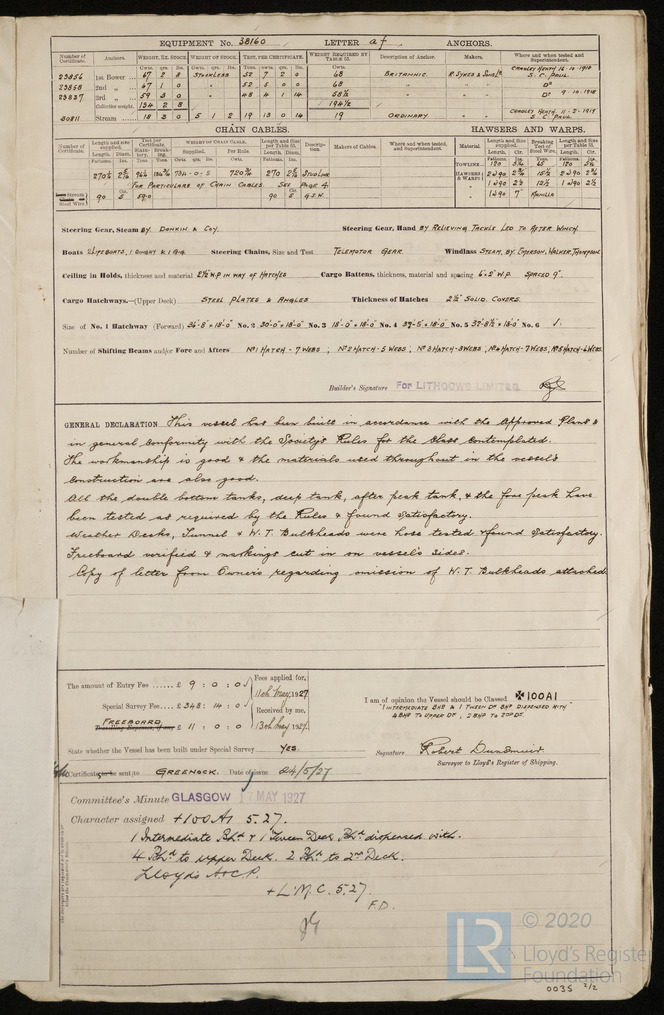 EQUIPMENT No. 38160 LETTER af ANCHORS.
Number of Certificate. Anchors. WEIGHT, EX. STOCK. WEIGHT OF STOCK. TEST, PER CERTIFICATE. WEIGHT REQUIRED BY TABLE 53. Description of Anchor. Makers. Where and when tested and Superintendent.
Cwts. qrs. lbs. Cwts. qrs. lbs. Tons. cwts. qrs. lbs. Cwts.
23856 1st Bower ... 67 2 8 STOCKLESS 52 7 2 0 68 BRITANNIC. R. SYKES & SONS LD. CRADLEY HEATH 16-10-1918 S. C. PAUL.
23858 2nd „ ... 67 1 0 " 52 5 0 0 68 " " Do
23837 3rd „ ... 59 3 0 " 48 4 1 14 58½ " " Do 9-10-1918
Collective weight. 194 2 8 194½
30811 Stream ... 18 3 0 5 1 2 19 13 0 14 19 ORDINARY " CRADLEY HEATH. 11-2-1919 S. C. PAUL.
CHAIN CABLES. HAWSERS AND WARPS.
Number of Certificate. Length and size supplied. Test per Certificate. WEIGHT OF CHAIN CABLE. Length and Size per Table 53. Description. Makers of Cables. Where and when tested, and Superintendent. Material Length and Size supplied. Breaking Test of Steel Wire. Length and Size per Table 53.
Supplied. Per Rule.
Fathoms. Ins. Tons. Tons. Cwts. qrs. lbs. Cwts. Fathoms. Ins.
TOWLINE
270 734-0-5 720 270 STUD LINK HAWSERS & WARPS
FOR PARTICULARS OF CHAIN CABLES SEE PAGE 4.
Stream Steel Wire 90 5 59.0 90 5 G.S.W. MANILLA
Steering Gear, Steam BY DONKIN & COY. Steering Gear, Hand BY RELIEVING TACKLE LED TO AFTER WINCH.
Boats 2 LIFEBOATS, 1 DINGHY & 1 GIG. Steering Chains, Size and Test TELEMOTOR GEAR. Windlass STEAM, BY EMERSON, WALKER, THOMPSON
Ceiling in Holds, thickness and material 2½" W.P. IN WAY OF HATCHES Cargo Battens, thickness, material and spacing 6"x2" W.P. SPACED 9".
Cargo Hatchways.—(Upper Deck) STEEL PLATES & ANGLES Thickness of Hatches 2½" SOLID COVERS.
Size of No. 1 Hatchway (Forward) 36'-8"x18'-0" No. 2 30'-0"x18'-0" No. 3 18'-0"x18'-0" No. 4 39'-5"x18'-0" No. 5 37'-8½"x18'-0" No. 6
Number of Shifting Beams and/or Fore and Afters No1 HATCH - 7 WEBS ; No2 HATCH - 5 WEBS ; No3 HATCH - 3 WEBS ; No4 HATCH - 7 WEBS ; No5 HATCH - 6 WEBS
Builder's Signature For LITHGOWS LIMITED
GENERAL DECLARATION This vessel has been built in accordance with the Approved Plans &
in general conformity with the Society's Rules for the Class Contemplated.
The workmanship is good & the materials used throughout in the vessel's
construction are also good.
All the double bottom tanks, deep tank, after peak tank, & the fore peak have
been tested as required by the Rules & found satisfactory.
Weather Decks, Tunnel & W.T. Bulkheads were hose tested & found satisfactory.
Freeboard verified & markings cut in on vessel's sides.
Copy of letter from Owners regarding omission of W.T. Bulkheads attached
The amount of Entry Fee ...... £ 9 : 0 : 0 Fees applied for,
11th May 1927
Special Survey Fee .... £ 348 : 14 : 0 Received by me,
FREEBOARD £ 11 : 0 : 0 13th May 1927.
I am of opinion the Vessel should be Classed ✠100A1
"1 INTERMEDIATE BHD & 1 TWEEN DK BHD DISPENSED WITH
4 BHD TO UPPER DK, 2 BHD TO 2ND DK.
State whether the Vessel has been built under Special Survey YES.
Signature Robert Dunsmuir
Surveyor to Lloyd's Register of Shipping.
Certificate to be sent to GREENOCK. Date of issue 24/5/27
Committee's Minute GLASGOW 17 MAY 1927
Character assigned +100A1 5.27.
1 Intermediate Bhd & 1 Tween Deck Bhd dispensed with.
4 Bhds to Upper Deck. 2 Bhds to 2nd Deck.
Lloyd's A&C.P.
+L.M.C. 5.27.
F.D.
LR © 2020
Lloyd's Register
Foundation
0035 2/2